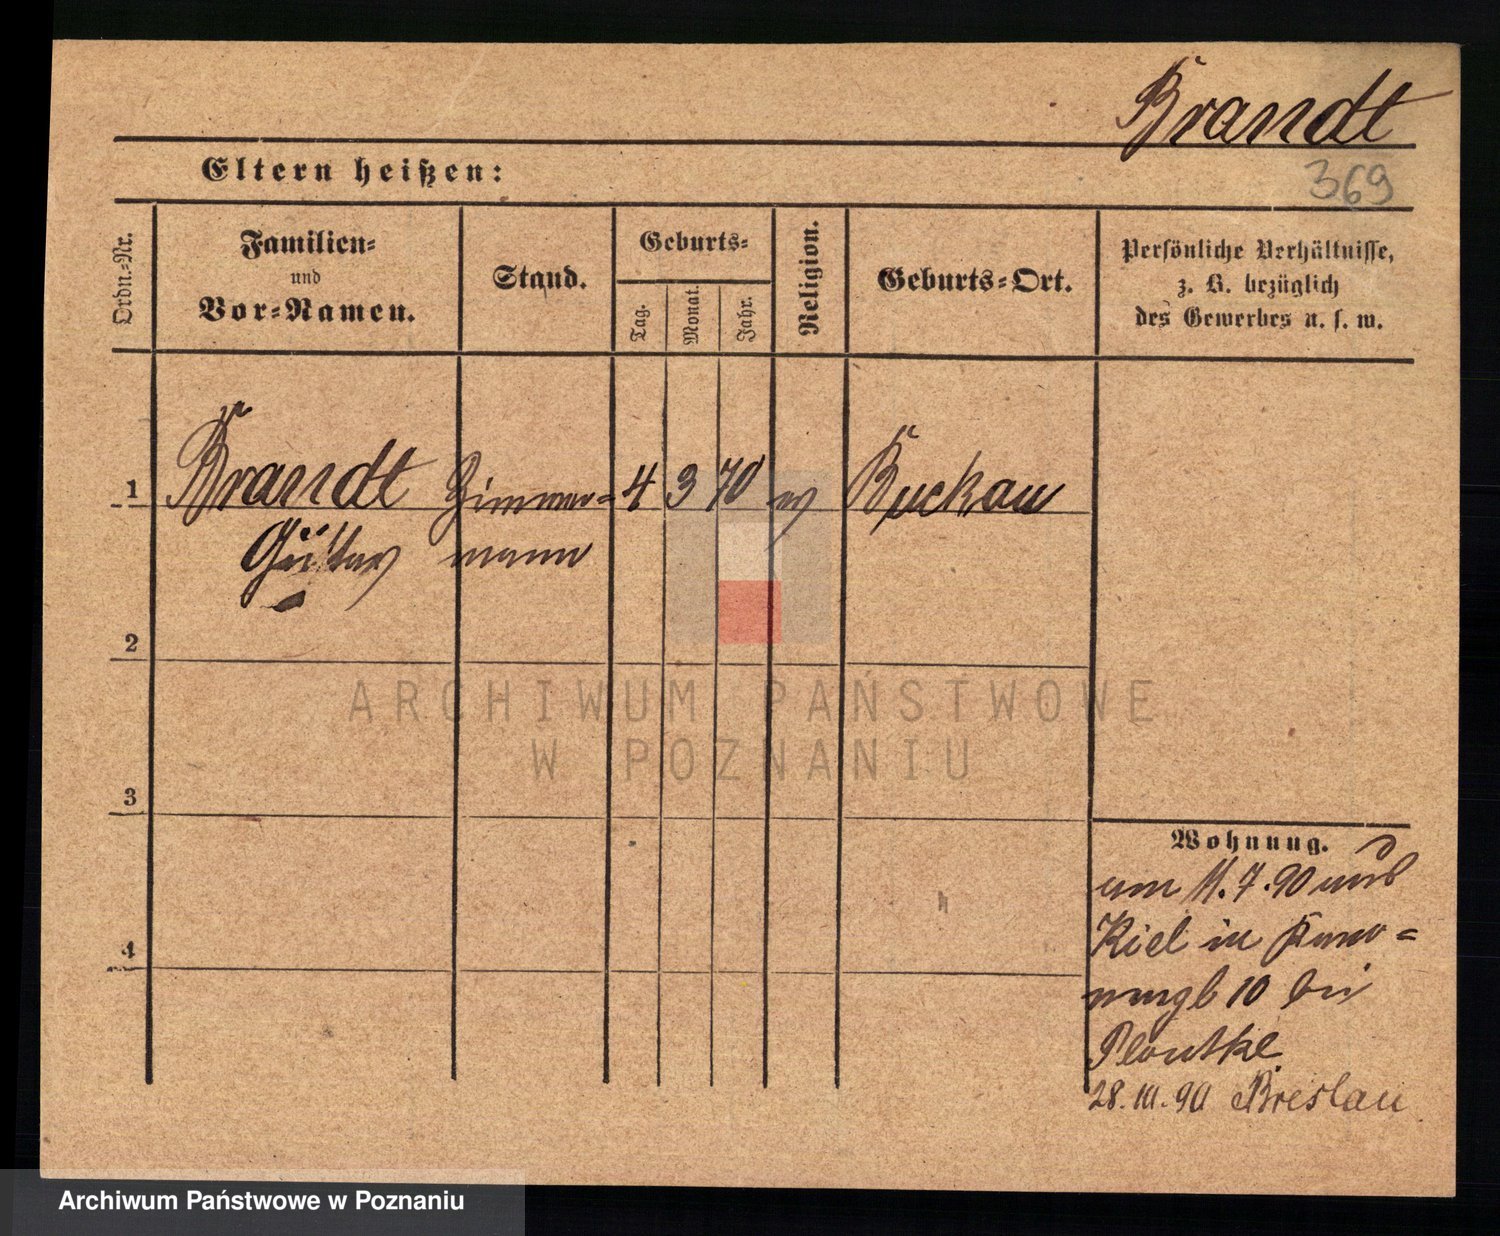 Brandt
369
Eltern heißen:
Ordn.-Nr.
Familien-
und
Vor-Namen.
Stand.
Geburts-
Tag.
Monat.
Jahr.
Religion.
Geburts-Ort.
Persönliche Verhältnisse,
z. B. bezüglich
des Gewerbes u. s. w.
1
Brandt Zimmer= 4 3 70 ev Buckau
Gustav mann
2
3
4
ARCHIWUM PAŃSTWOWE
W POZNANIU
Wohnung.
am 11.7.90 aus
Kiel in
10 bei
Plontke
28.10.90 Breslau
Archiwum Państwowe w Poznaniu